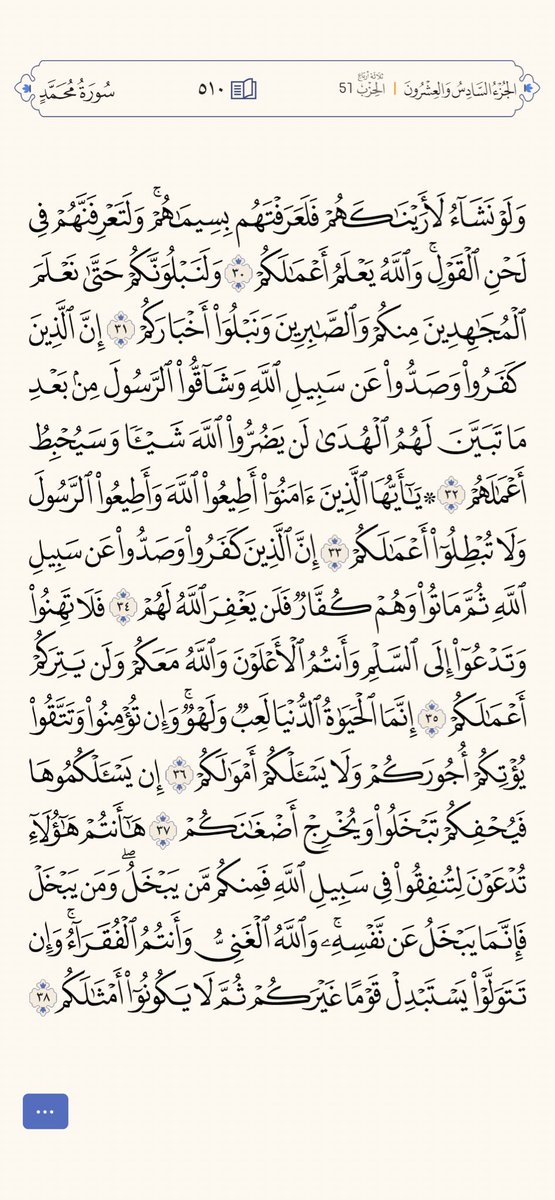 الجُزْءُ السَّادِسُ وَالعِشْرُونَ | ثلاثة أرباع الحِزْب 51 ٥١٠ سُورَةُ مُحَمَّدٍ
وَلَوْ نَشَآءُ لَأَرَيْنَٰكَهُمْ فَلَعَرَفْتَهُم بِسِيمَٰهُمْۚ وَلَتَعْرِفَنَّهُمْ فِى
لَحْنِ ٱلْقَوْلِۚ وَٱللَّهُ يَعْلَمُ أَعْمَٰلَكُمْ ٣٠ وَلَنَبْلُوَنَّكُمْ حَتَّىٰ نَعْلَمَ
ٱلْمُجَٰهِدِينَ مِنكُمْ وَٱلصَّٰبِرِينَ وَنَبْلُوَا۟ أَخْبَارَكُمْ ٣١ إِنَّ ٱلَّذِينَ
كَفَرُوا۟ وَصَدُّوا۟ عَن سَبِيلِ ٱللَّهِ وَشَآقُّوا۟ ٱلرَّسُولَ مِنۢ بَعْدِ
مَا تَبَيَّنَ لَهُمُ ٱلْهُدَىٰ لَن يَضُرُّوا۟ ٱللَّهَ شَيْـًٔا وَسَيُحْبِطُ
أَعْمَٰلَهُمْ ٣٢ ۞ يَٰٓأَيُّهَا ٱلَّذِينَ ءَامَنُوٓا۟ أَطِيعُوا۟ ٱللَّهَ وَأَطِيعُوا۟ ٱلرَّسُولَ
وَلَا تُبْطِلُوٓا۟ أَعْمَٰلَكُمْ ٣٣ إِنَّ ٱلَّذِينَ كَفَرُوا۟ وَصَدُّوا۟ عَن سَبِيلِ
ٱللَّهِ ثُمَّ مَاتُوا۟ وَهُمْ كُفَّارٌ فَلَن يَغْفِرَ ٱللَّهُ لَهُمْ ٣٤ فَلَا تَهِنُوا۟
وَتَدْعُوٓا۟ إِلَى ٱلسَّلْمِ وَأَنتُمُ ٱلْأَعْلَوْنَ وَٱللَّهُ مَعَكُمْ وَلَن يَتِرَكُمْ
أَعْمَٰلَكُمْ ٣٥ إِنَّمَا ٱلْحَيَوٰةُ ٱلدُّنْيَا لَعِبٌ وَلَهْوٌۚ وَإِن تُؤْمِنُوا۟ وَتَتَّقُوا۟
يُؤْتِكُمْ أُجُورَكُمْ وَلَا يَسْـَٔلْكُمْ أَمْوَٰلَكُمْ ٣٦ إِن يَسْـَٔلْكُمُوهَا
فَيُحْفِكُمْ تَبْخَلُوا۟ وَيُخْرِجْ أَضْغَٰنَكُمْ ٣٧ هَٰٓأَنتُمْ هَٰٓؤُلَآءِ
تُدْعَوْنَ لِتُنفِقُوا۟ فِى سَبِيلِ ٱللَّهِ فَمِنكُم مَّن يَبْخَلُۖ وَمَن يَبْخَلْ
فَإِنَّمَا يَبْخَلُ عَن نَّفْسِهِۦۚ وَٱللَّهُ ٱلْغَنِىُّ وَأَنتُمُ ٱلْفُقَرَآءُۚ وَإِن
تَتَوَلَّوْا۟ يَسْتَبْدِلْ قَوْمًا غَيْرَكُمْ ثُمَّ لَا يَكُونُوٓا۟ أَمْثَٰلَكُم ٣٨